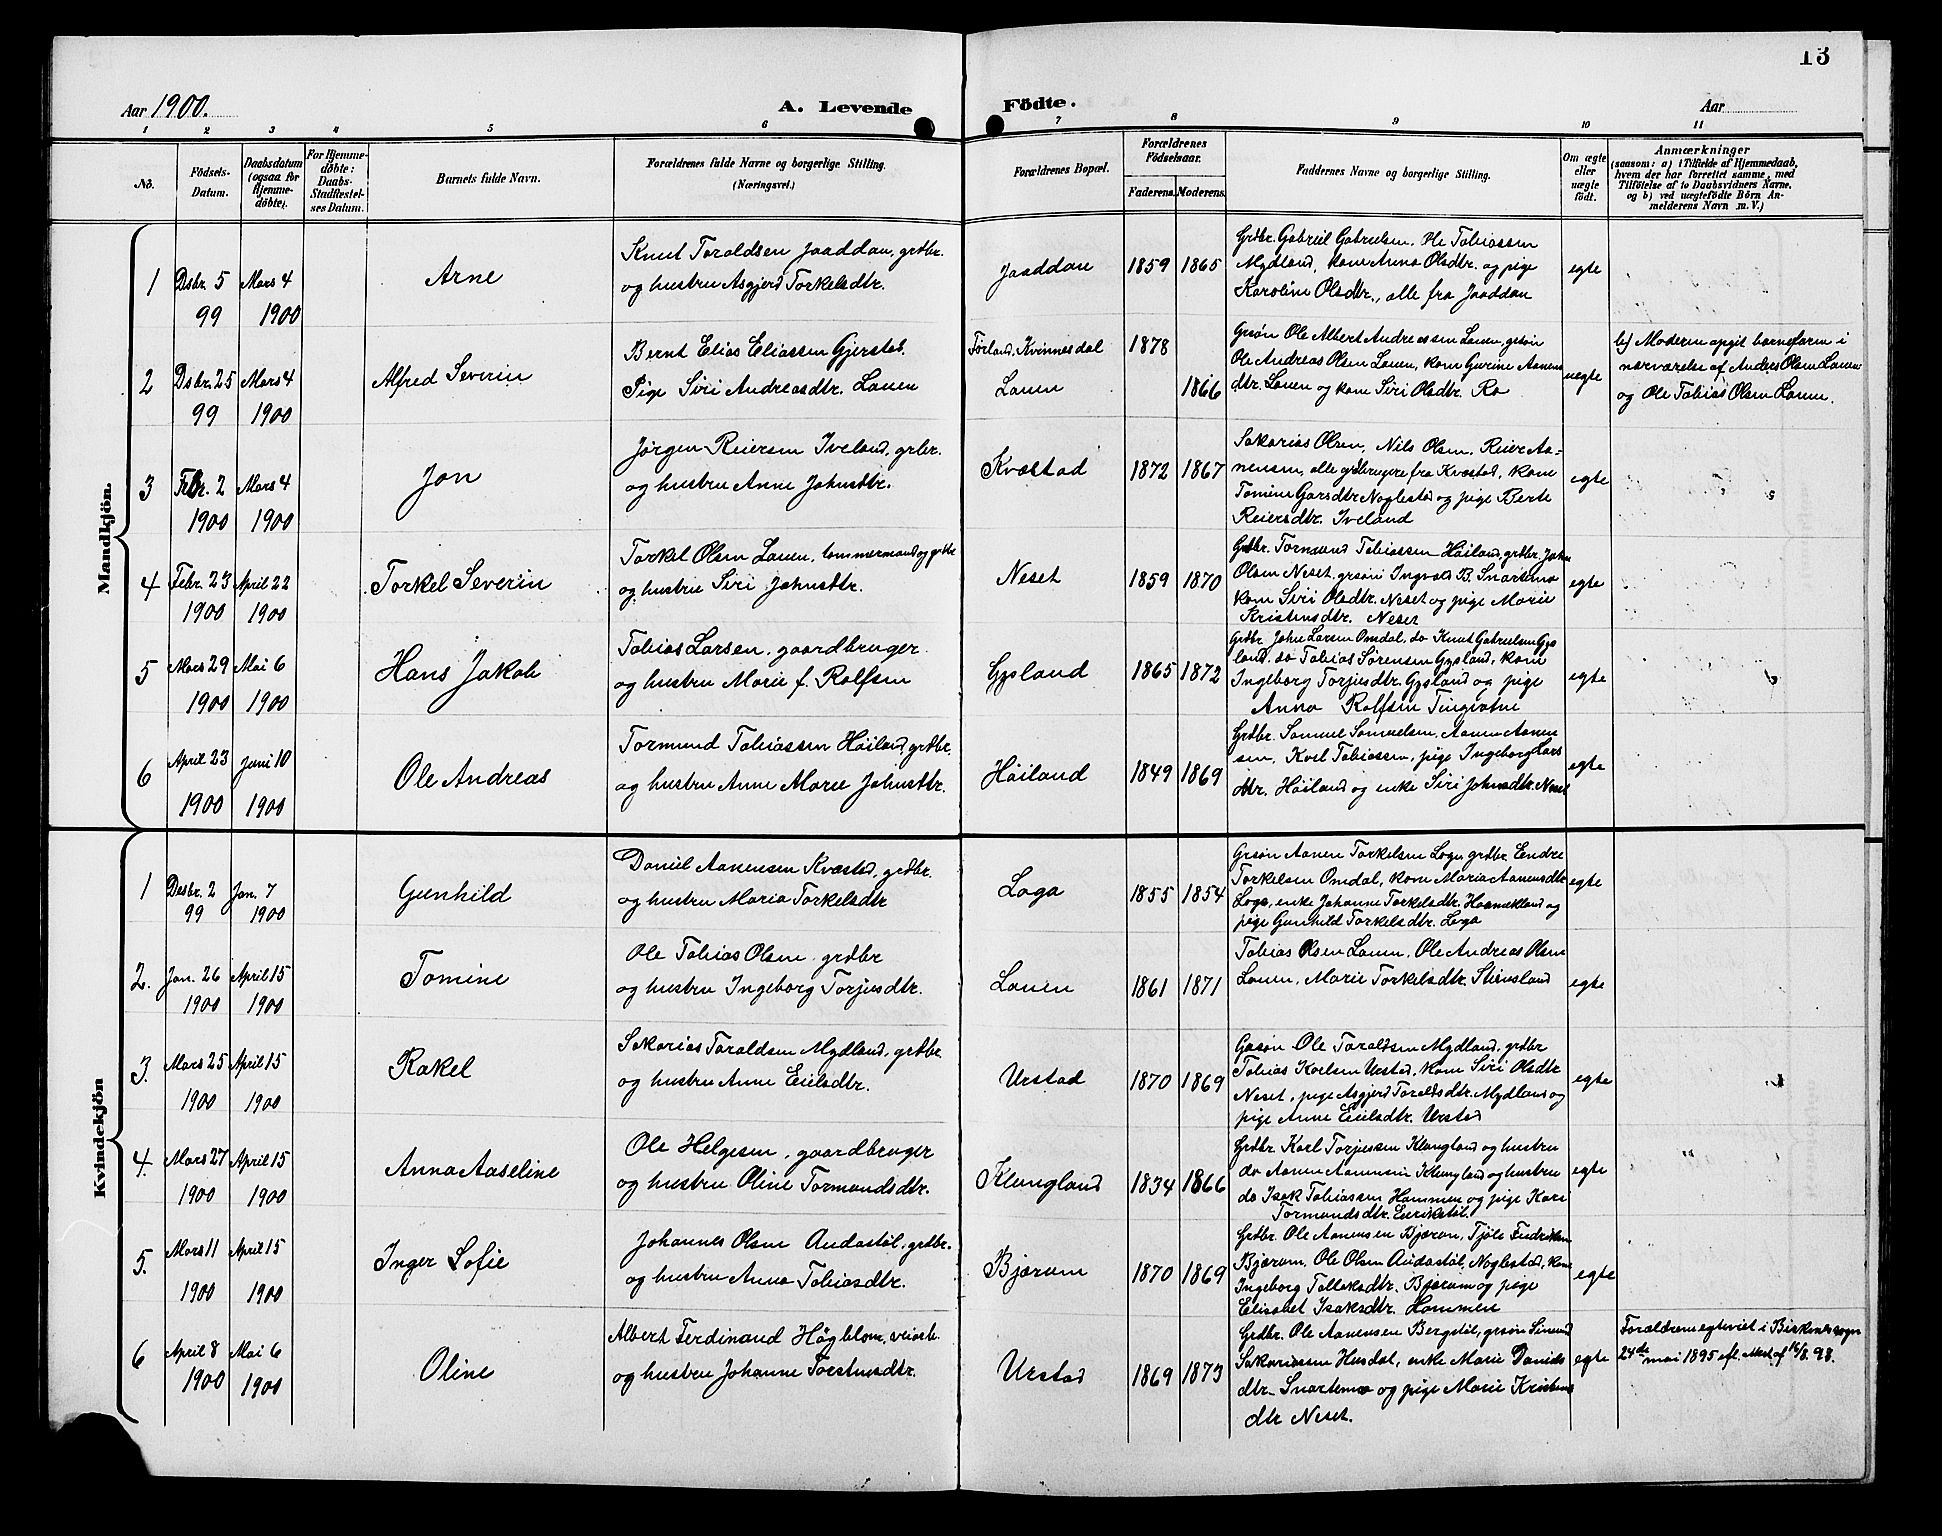 13
Aar 1900.
A. Levende Födte.
Aar
1 2 3 4 5 6 7 8 9 10 11
No.
Födsels-Datum.
Daabsdatum (ogsaa for Hjemme-döbte).
For Hjemme-döbte: Daabs-Stadfæstel-ses Datum.
Barnets fulde Navn.
Forældrenes fulde Navne og borgerlige Stilling. (Næringsvei.)
Forældrenes Bopæl.
Forældrenes Födselsaar.
Faderens. Moderens.
Faddernes Navne og borgerlige Stilling.
Om ægte eller uægte födt.
Anmærkninger
(saasom: a) i Tilfælde af Hjemmedaab, hvem der har forrettet samme, med Tilföielse af to Daabsvidners Navne, og b) ved uægtefödte Börn Anmelderens Navn m. V.)
Mandkjön.
1 Dsbr. 5 99 Mars 4 1900
Arne
Knut Toraldsen Jaaddan, grdbr.
og hustru Asgjerd Torkelsdtr.
Jaaddan 1859 1865
Grdbr. Gabriel Gabrielsen, Ole Tobiassen
Mydland, kone Anna Olsdtr. og pige
Karoline Olsdtr., alle fra Jaaddan
egte
2 Dsbr. 25 99 Mars 4 1900
Alfred Severin
Bernt Elias Eliassen Gjerstad.
Pige Siri Andreasdtr. Lauen
Førland, Kvinnesdal 1878
Lauen 1866
Grsøn Ole Albert Andreassen Lauen, grsøn
Ole Andreas Olsen Lauen, kone Gurine Aanens
dtr. Lauen og kone Siri Olsdtr. Ro
uegte
b) Moderen opgit barnefaren i
nærværelse af Anders Olsen Lauen
og Ole Tobias Olsen Lauen.
3 Febr. 2 1900 Mars 4 1900
Jon
Jørgen Reiersen Iveland, grbr.
og hustru Anne Johnsdtr.
Kvæstad 1872 1867
Sakarias Olsen, Nils Olsen, Reier Aa-
nensen, alle grdbrugere fra Kvæstad, kone
Tomine Garsdtr Noglestad og pige Berte
Reiersdtr. Iveland
egte
4 Febr. 23 1900 April 22 1900
Torkel Severin
Torkel Olsen Lauen, tømmermand og grdbr
og hustru Siri Johnsdtr.
Neset 1859 1870
Grdbr. Tormund Tobiassen Høiland, grdbr. John
Olsen Neset, grsøn Ingvald B. Snartemo
kone Siri Olsdtr. Neset og pige Marie
Kristensdtr. Neset
egte
5 Mars 29 1900 Mai 6 1900
Hans Jakob
Tobias Larsen, gaardbruger
og hustru Marie f. Rolfsen
Gysland 1865 1872
Grdbr. John Larsen Omdal, do Knut Gabrielsen Gys
land, do Tobias Sørensen Gysland, kone
Ingeborg Torjusdtr. Gysland og pige
Anna Rolfsen Tingvatne
egte
6 April 23 1900 Juni 10 1900
Ole Andreas
Tormund Tobiassen Høiland, grdbr.
og hustru Anne Marie Johnsdtr.
Høiland 1849 1869
Grdbr. Samuel Samuelsen, Aanen Aanen
sen, Karl Tobiassen, pige Ingeborg Lars
dtr. Høiland og enke Siri Johnsdtr. Neset
egte
Kvindekjön
1 Desbr. 2 99 Jan. 7 1900
Gunhild
Daniel Aanensen Kvæstad, grdbr.
og hustru Maria Torkelsdtr
Loga 1855 1854
Grsøn Aanen Torkelsen Loga, grdbr Endre
Torkelsen Omdal, kone Maria Aanensdtr
Loga, enke Johanne Torkelsdtr. og
pige Gunhild Torkelsdtr. Loga
egte
2. Jan. 26 1900 April 15 1900
Tomine
Ole Tobias Olsen, grdbr
og hustru Ingeborg Torjusdtr.
Lauen 1861 1871
Tobias Olsen Lauen, Ole Andreas Olsen
Lauen, Marie Torkelsdtr. Stensland
egte
3. Mars 25 1900 April 15 1900
Rakel
Sakarias Toraldsen Mydland, grdbr
og hustru Anne Eielsdtr.
Urstad 1870 1869
Grsøn Ole Toraldsen Mydland, grdbr
Tobias Karlsen Urstad, kone Siri Olsdtr
Neset, pige Asgjerd Toraldsdtr. Mydland og
pige Anne Eielsdtr. Urstad
egte
4. Mars 27 1900 April 15 1900
Anna Aaseline
Ole Helgesen, gaardbruger
og hustru Oline Tormundsdtr.
Klungland 1834 1866
Grdbr. Karl Torjussen Klungland og hustru
do Aanen Aanensen Klungland og hustru
do Isak Tobiassen Hommen og pige Kari
Tormundsdtr. Eirikstøl.
egte
5. Mars 11 1900 April 15 1900
Inger Sofie
Johannes Olsen Audastøl, grdbr.
og hustru Anna Tobiasdtr.
Bjærum 1870 1869
Grdbr. Ole Aanensen Bjærum, Tjøle Endresen
Bjærum, Ole Olsen Audastøl, Noglestad, kone
Ingeborg Tolleksdtr. Bjærum og pige
Elisabet Isaksdtr. Hommen
egte
6 April 8 1900 Mai 6 1900
Oline
Albert Ferdinand Högblom, veiarb.
og hustru Johanne Torstensdtr.
Urstad 1869 1873
Grdbr. Ole Aanensen Bergstøl, grsøn Simund
Sakariassen Husdal, enke Marie Daniels
dtr. Snartemo og pige Marie Kristens
dtr Neset.
egte
Forældrene egteviet i Birkenes sogn
24de mai 1895 efl. Attest af 16/8. 98.